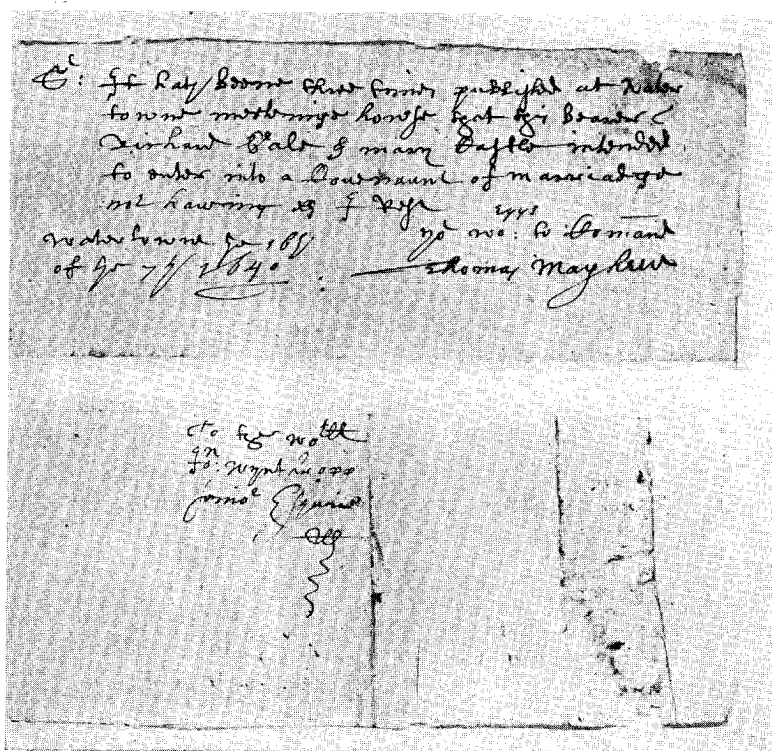 Sr: It hath beene three times published at Water
towne meeteinge howse that this bearer
Richard Gale & mary Castle intended
to enter into a Covenaunt of marriadge
not haveing & I Rest
yor wo: to Comand
watertowne ye 16th
of ye 7th 1640 Thomas Mayhew
To the woll
Jo: wynthropp
senior Esquire